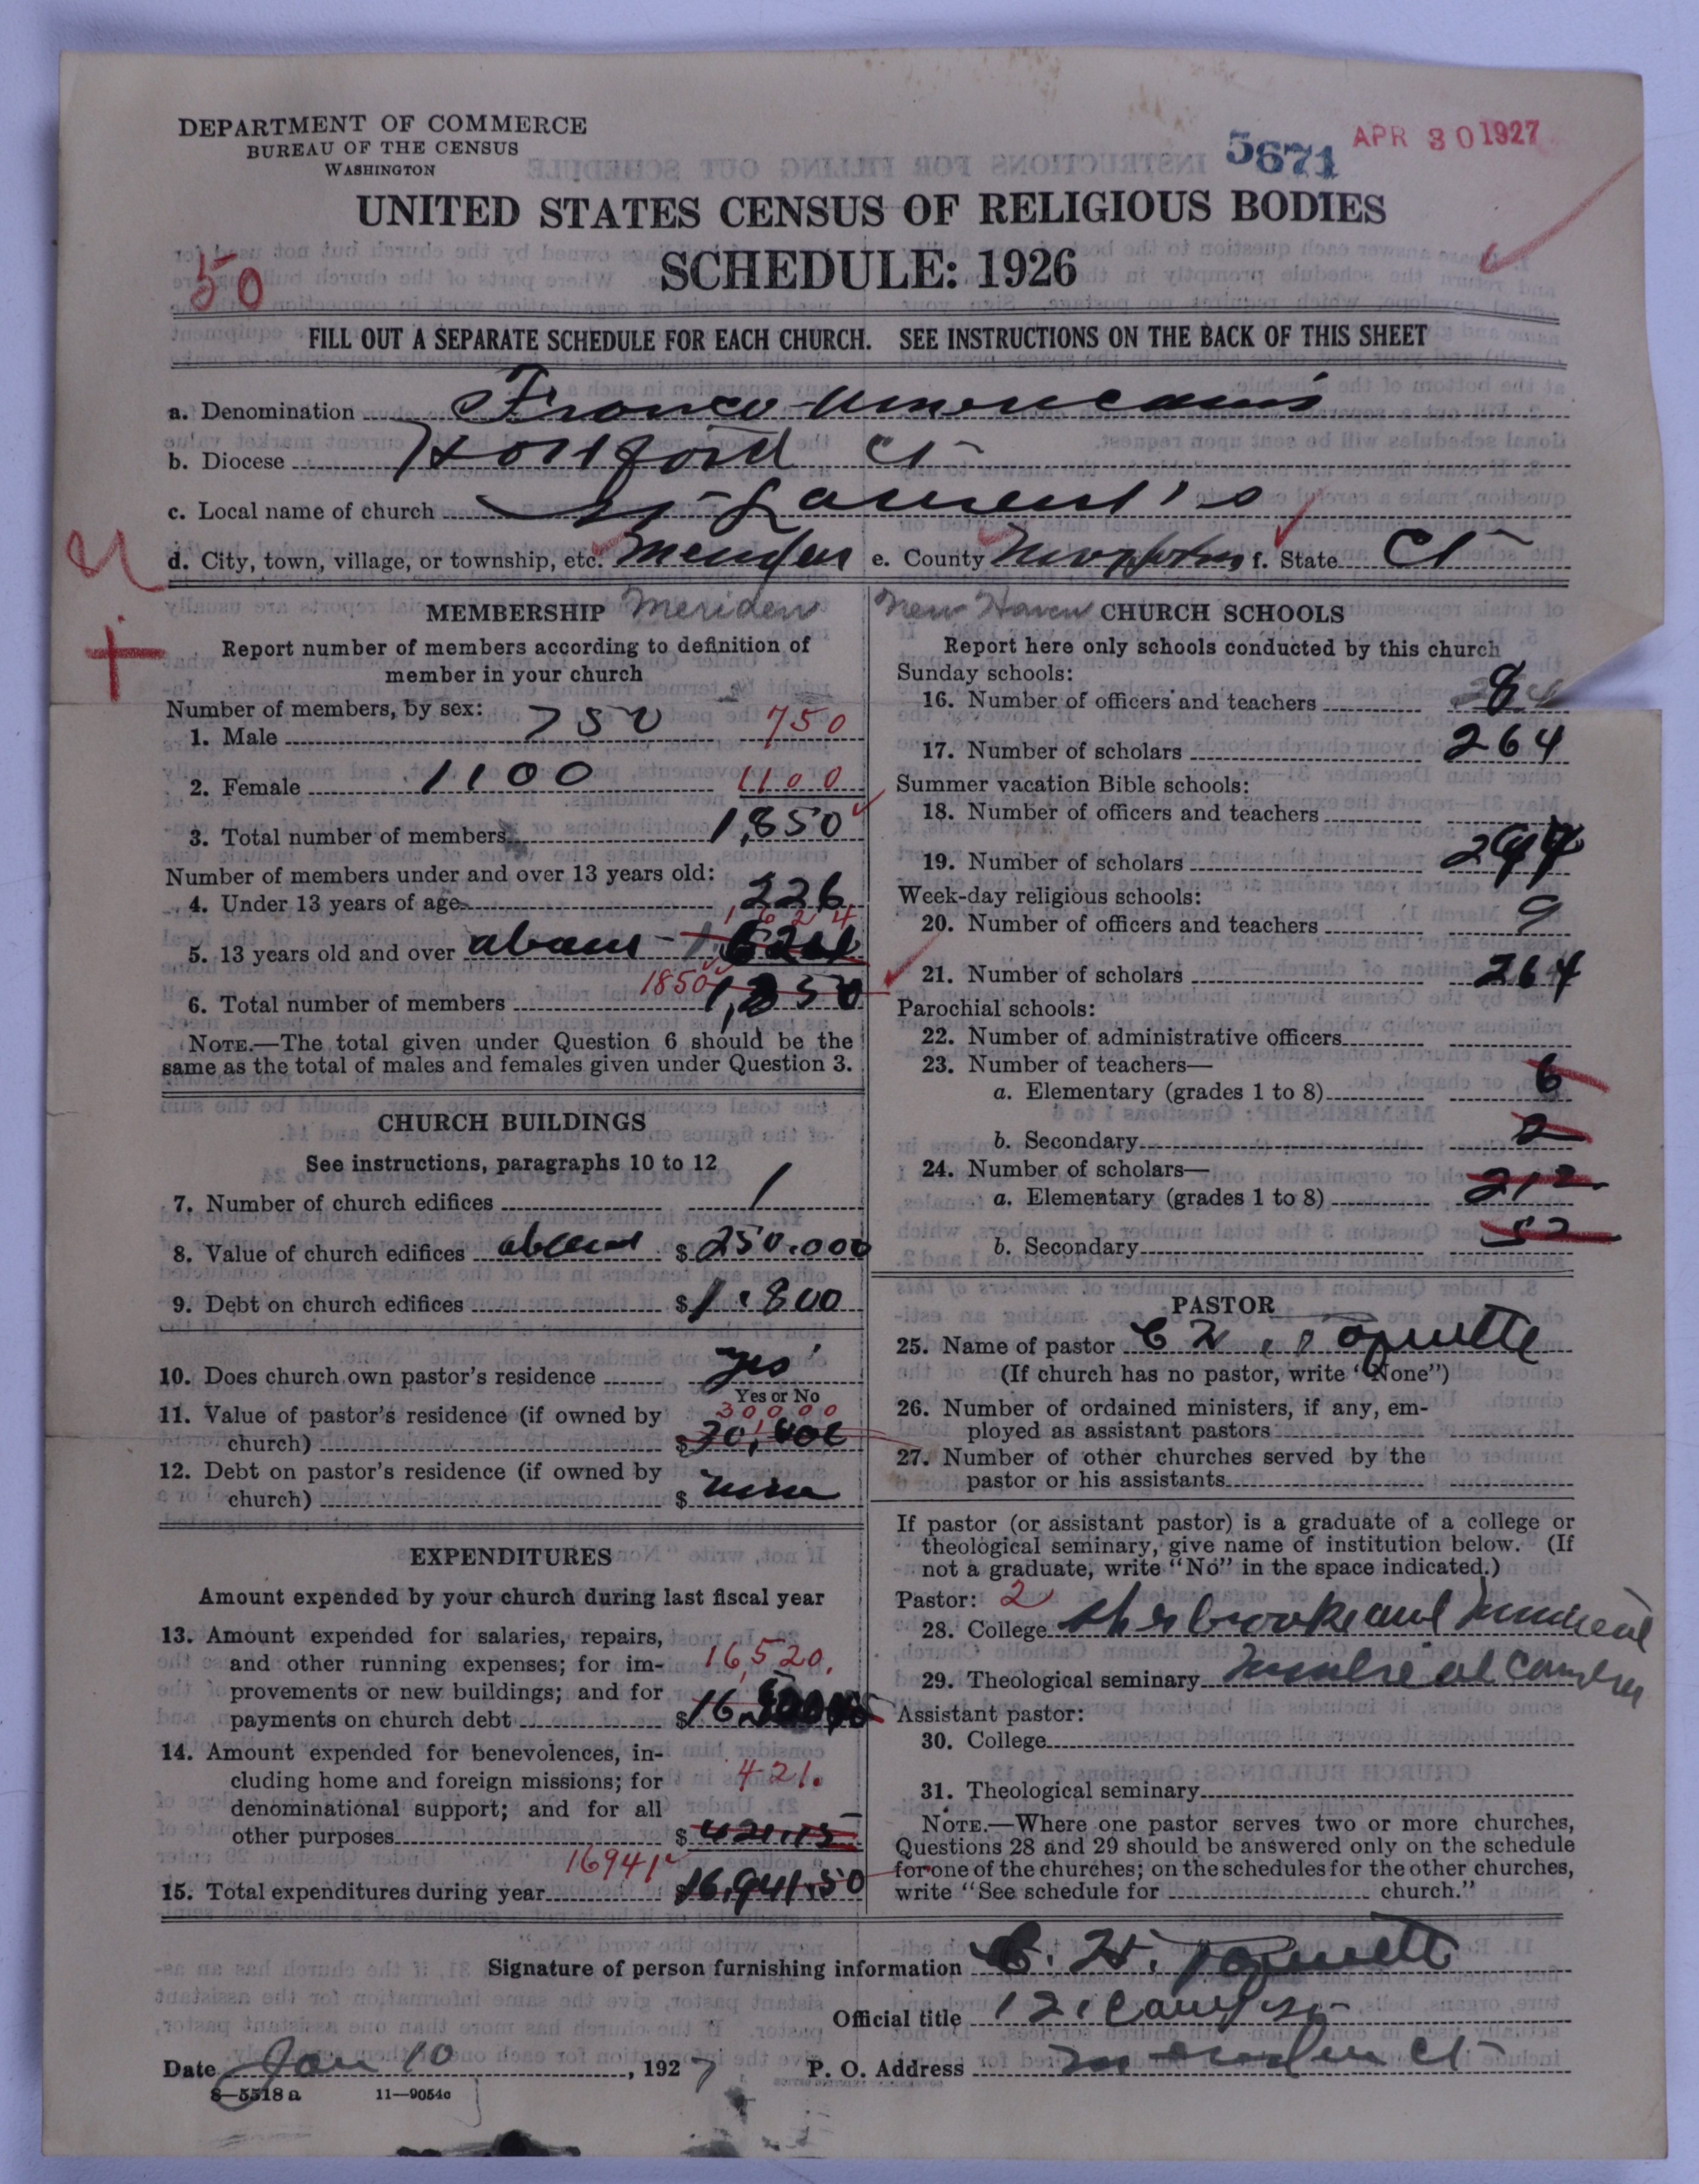 DEPARTMENT OF COMMERCE
BUREAU OF THE CENSUS
WASHINGTON
5671
APR 30 1927
UNITED STATES CENSUS OF RELIGIOUS BODIES
SCHEDULE: 1926
50
FILL OUT A SEPARATE SCHEDULE FOR EACH CHURCH. SEE INSTRUCTIONS ON THE BACK OF THIS SHEET
a. Denomination Franco-Americans
b. Diocese Hartford Ct
c. Local name of church St Laurent's
d. City, town, village, or township, etc. Meriden e. County f. State Ct
MEMBERSHIP Meriden
Report number of members according to definition of
member in your church
Number of members, by sex:
1. Male 750 750
2. Female 1100 1100
3. Total number of members 1,850
Number of members under and over 13 years old:
4. Under 13 years of age 226
1624
5. 13 years old and over about 1,624
6. Total number of members 1850 1,850
NOTE.—The total given under Question 6 should be the
same as the total of males and females given under Question 3.
CHURCH BUILDINGS
See instructions, paragraphs 10 to 12
7. Number of church edifices 1
8. Value of church edifices about $ 250.000
9. Debt on church edifices $ 1.800
10. Does church own pastor's residence yes
Yes or No
11. Value of pastor's residence (if owned by 30000
church) $
12. Debt on pastor's residence (if owned by
church) $ none
EXPENDITURES
Amount expended by your church during last fiscal year
13. Amount expended for salaries, repairs,
and other running expenses; for im- 16,520.
provements or new buildings; and for
payments on church debt $
14. Amount expended for benevolences, in-
cluding home and foreign missions; for 421.
denominational support; and for all
other purposes $ 421.15
16941
15. Total expenditures during year $ 16,941.50
New Haven CHURCH SCHOOLS
Report here only schools conducted by this church
Sunday schools:
16. Number of officers and teachers 8
17. Number of scholars 264
Summer vacation Bible schools:
18. Number of officers and teachers
19. Number of scholars
Week-day religious schools:
20. Number of officers and teachers 9
21. Number of scholars 264
Parochial schools:
22. Number of administrative officers
23. Number of teachers—
a. Elementary (grades 1 to 8) 6
b. Secondary 2
24. Number of scholars—
a. Elementary (grades 1 to 8) 212
b. Secondary 52
PASTOR
25. Name of pastor
(If church has no pastor, write "None")
26. Number of ordained ministers, if any, em-
ployed as assistant pastors
27. Number of other churches served by the
pastor or his assistants
If pastor (or assistant pastor) is a graduate of a college or
theological seminary, give name of institution below. (If
not a graduate, write "No" in the space indicated.)
Pastor: 2
28. College Sherbrooke and Montreal
29. Theological seminary Montreal Canada
Assistant pastor:
30. College
31. Theological seminary
NOTE.—Where one pastor serves two or more churches,
Questions 28 and 29 should be answered only on the schedule
for one of the churches; on the schedules for the other churches,
write "See schedule for church."
Signature of person furnishing information
Official title 121 Camp St
Date Jan 10, 1927 P. O. Address Meriden Ct
8—5518 a 11—9054c